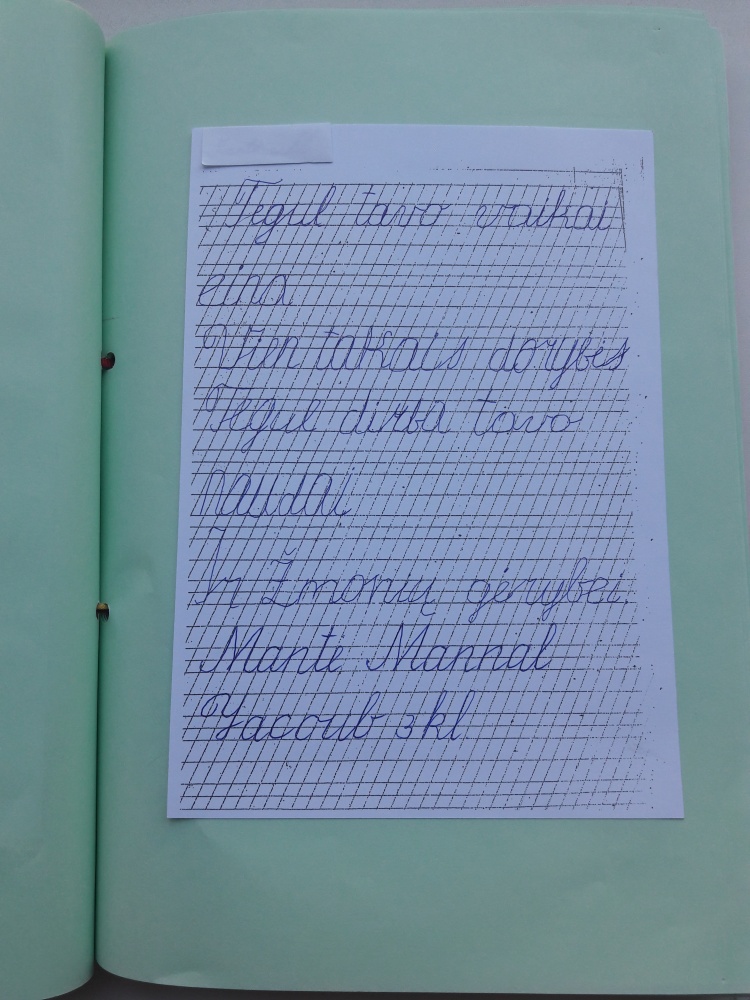 Tegul tavo vaikai
eina
Vien takais dorybės
Tegul dirba tavo
naudai
Ir žmonių gėrybei.
Mantė Mannal
Yacoub 3kl